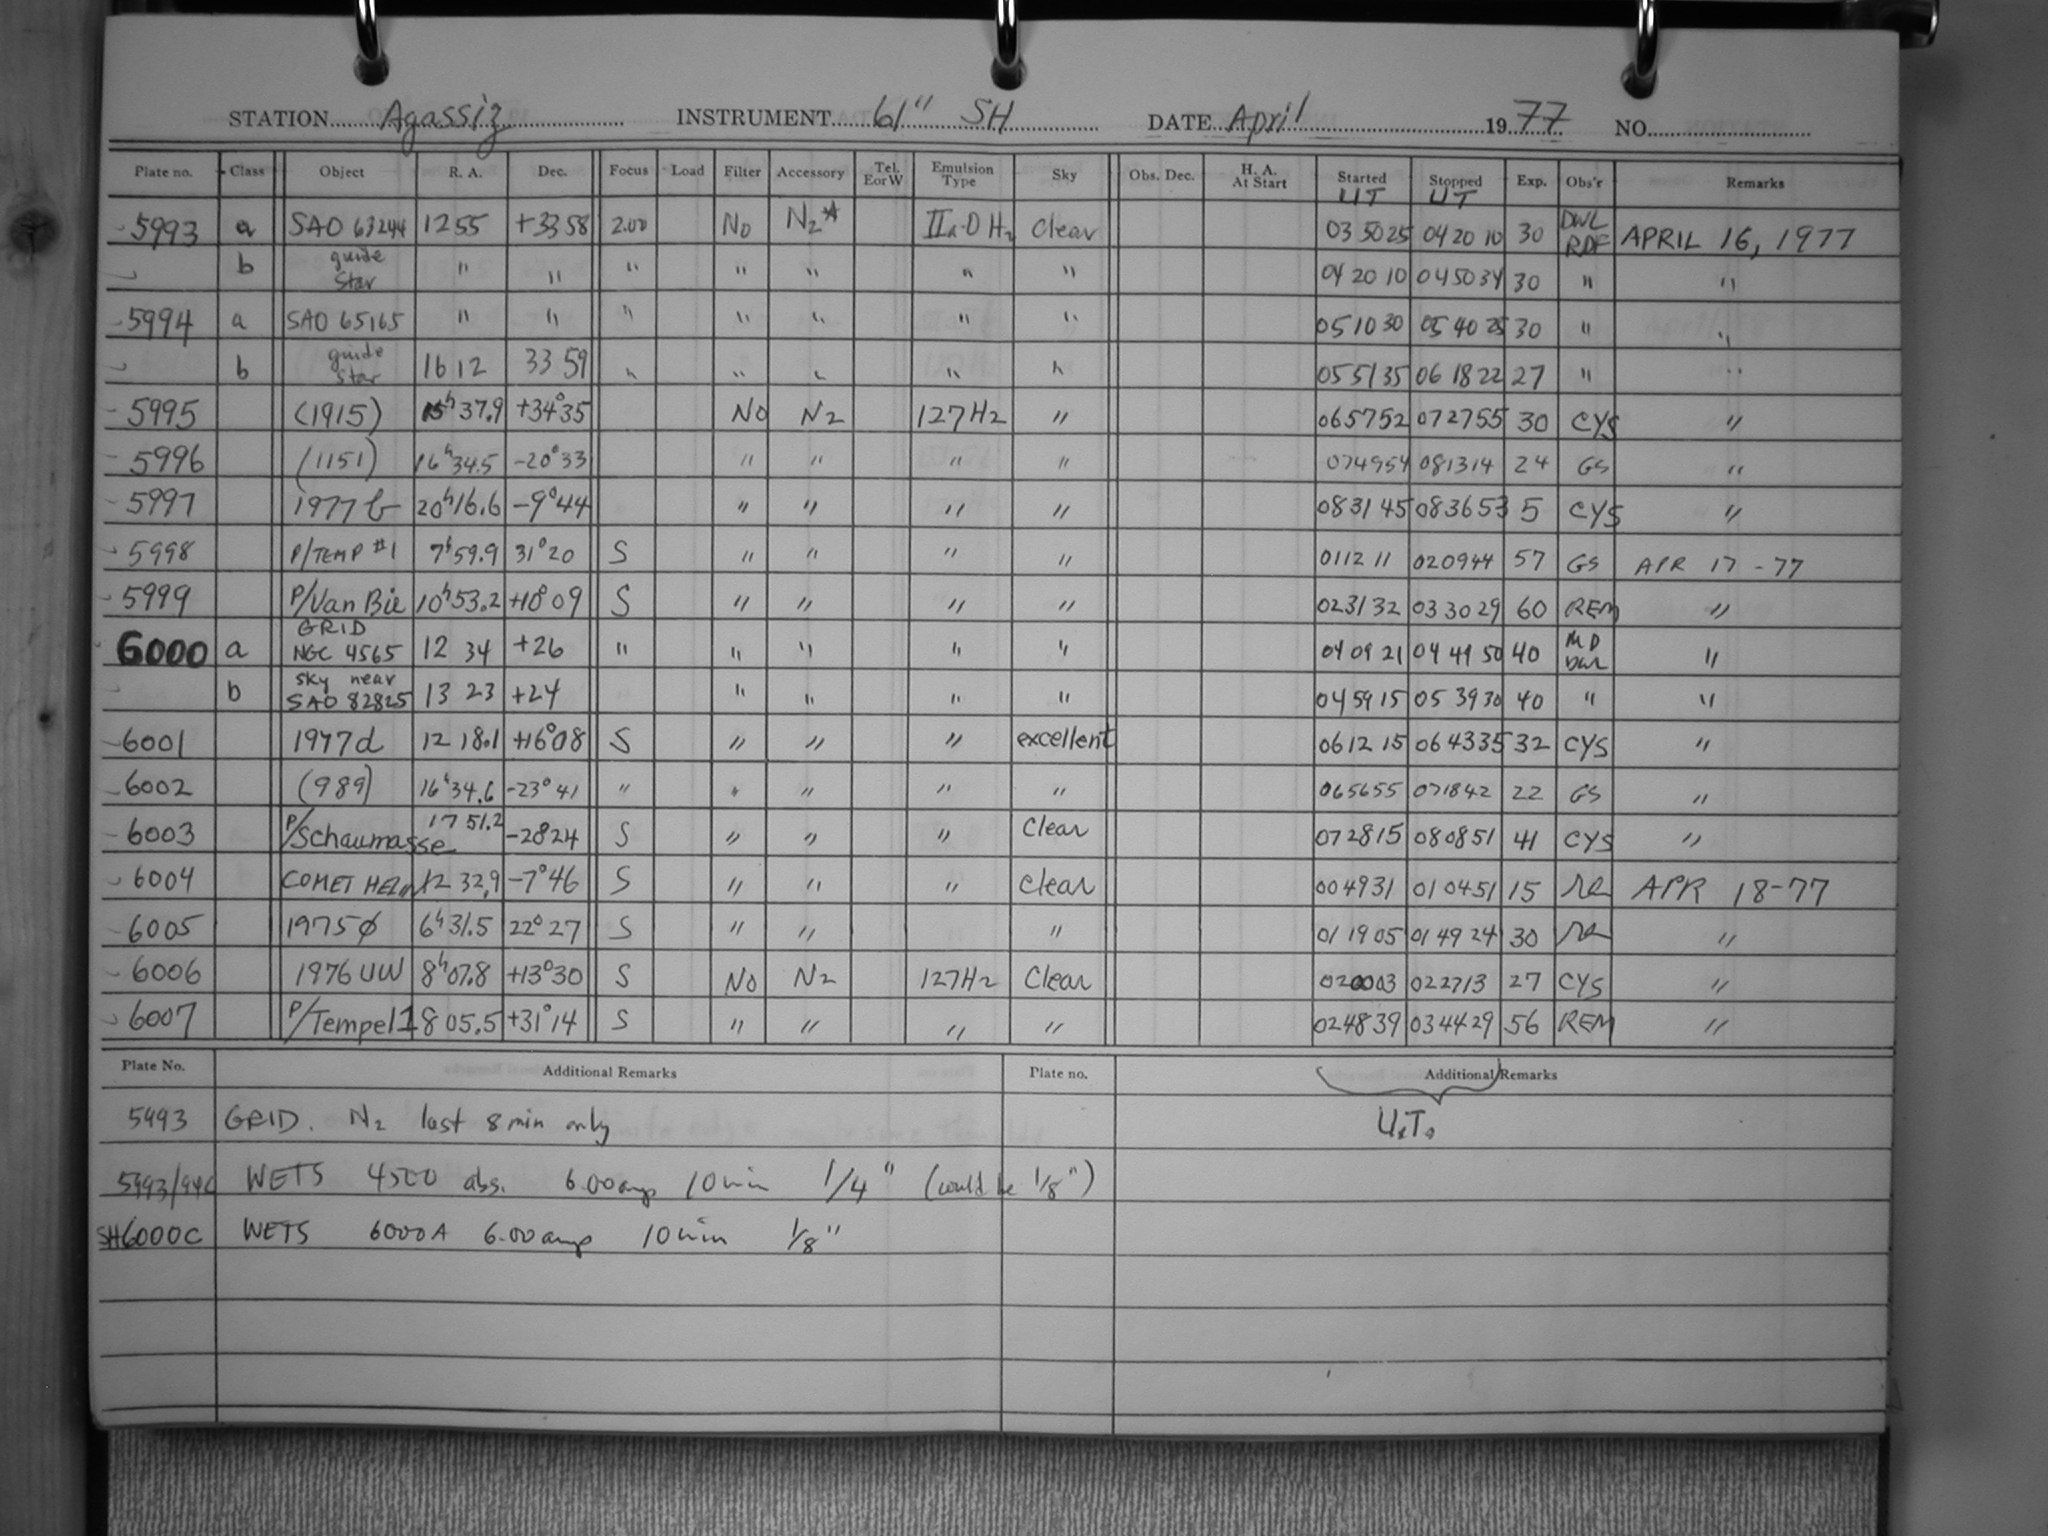 STATION Agassiz INSTRUMENT 61" SH DATE April 1977 NO.
Plate no. Class Object R. A. Dec. Focus Load Filter Accessory Tel. E or W Emulsion Type Sky Obs. Dec. H. A. At Start Started UT Stopped UT Exp. Obs'r Remarks
5993 a SAO 63244 12 55 +33 58 2.00 No N2* IIa-O H2 Clear 03 50 25 04 20 10 30 DWL RDF APRIL 16, 1977
b guide star " " " " " " " 04 20 10 04 50 34 30 " "
5994 a SAO 65165 " " " " " " " 05 10 30 05 40 25 30 " "
b guide star 16 12 33 59 " " " " " 05 51 35 06 18 22 27 " "
5995 (1915) 15h 37.9 +34° 35 No N2 127H2 " 065752 072755 30 CYS "
5996 (1151) 16h 34.5 -20° 33 " " " " 074954 081314 24 GS "
5997 1977 b 20h 16.6 -9° 44 " " " " 083145 083653 5 CYS "
5998 P/TEMP #1 7h 59.9 31° 20 S " " " " 0112 11 020944 57 GS APR 17 - 77
5999 P/Van Bie 10h 53.2 +10° 09 S " " " " 023132 033029 60 REM "
6000 a GRID NGC 4565 12 34 +26 " " " " " 04 09 21 04 49 50 40 MD DWL "
b sky near SAO 82825 13 23 +24 " " " " 04 59 15 05 39 30 40 " "
6001 1977d 12 18.1 +16° 08 S " " " excellent 0612 15 064335 32 CYS "
6002 (989) 16h 34.6 -23° 41 " " " " " 065655 071842 22 GS "
6003 P/Schaumasse 17 51.2 -28 24 S " " " Clear 072815 080851 41 CYS "
6004 COMET 12 32.9 -7° 46 S " " " Clear 004931 010451 15 APR 18-77
6005 1975Ø 6h 31.5 22° 27 S " " " 01 19 05 01 49 24 30 "
6006 1976 UW 8h 07.8 +13° 30 S No N2 127H2 Clear 020003 022713 27 CYS "
6007 P/Tempel 1 8 05.5 +31° 14 S " " " " 024839 034429 56 REM "
Plate No. Additional Remarks Plate no. Additional Remarks
5993 GRID. N2 last 8 min only U.T.
5993/94C WETS 4500 abs. 6.00 amp 10 min 1/4" (could be 1/8")
SH6000C WETS 6000A 6.00 amp 10 min 1/8"